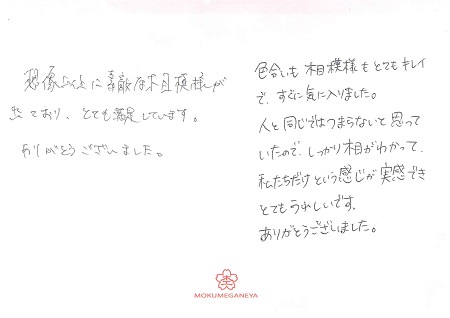 想像以上に素敵な木目模様が
出ており、とても満足しています。
ありがとうございました。
色合いも木目模様もとてもキレイ
で、すぐに気に入りました。
人と同じではつまらないと思って
いたので、しっかり木目がわかって、
私たちだけという感じが実感でき
とてもうれしいです。
ありがとうございました。
MOKUMEGANEYA